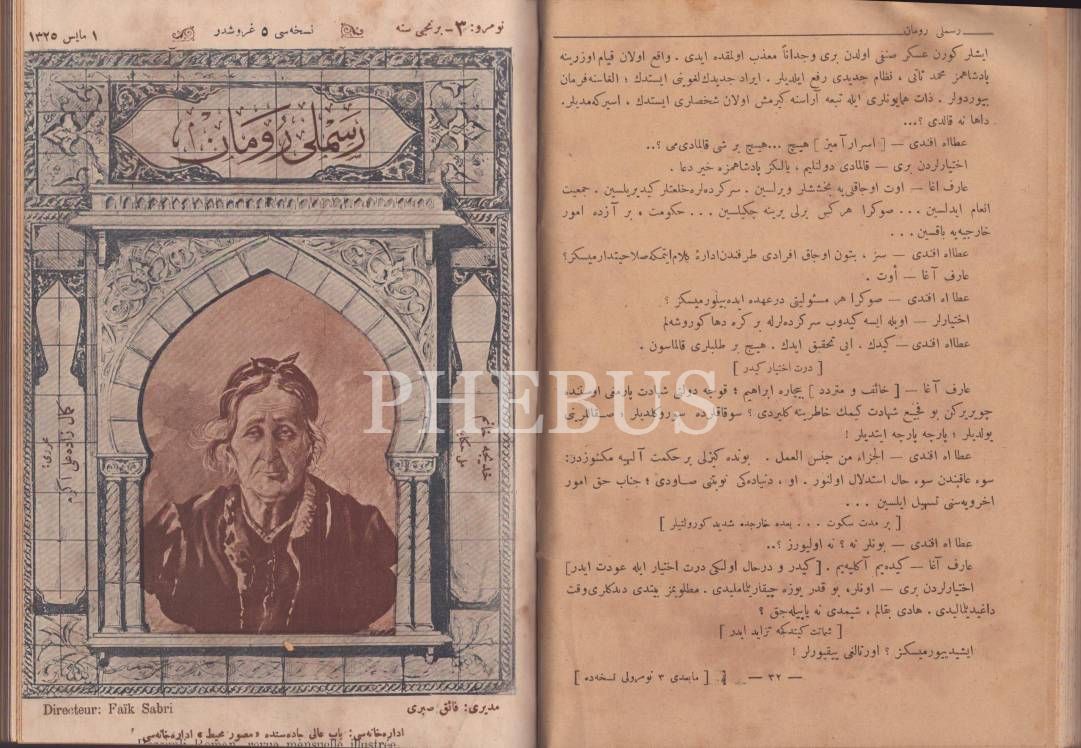 نومرو: ٣ - برنجی سنه
نسخه‌سی ٥ غروشدر
١ مایس ١٣٢٥
رسملی رومان
محرری:
کمال زاده علی اکرم
Directeur: Faïk Sabri
مدیری: فائق صبری
اداره‌خانه‌سی: باب عالی جاده‌سنده «مصور محیط» اداره‌خانه‌سی
Roman, revue mensuelle illustrée
PHEBUS
رسملی رومان
ایشلر کورن عسکر صنفی اولدن بری وجداناً معذب اولمقده ایدی . واقع اولان قیام اوزرینه
پادشاهمز محمد ثانی ، نظام جدیدی رفع ایلدیلر . ایراد جدیدك لغوینی ایستدك ؛ الغاسنه فرمان
بیوردولر . ذات همایونلری ایله تبعه آراسنه کیرمش اولان شخصلری ایستدك . اسیرکه‌مدیلر .
داها نه قالدی ؟...
عطاءاه افندی — [ اسرارآمیز ] هیچ ... هیچ بر شی قالمادی‌می ؟..
اختیارلردن بری — قالمادی دولتلیم ، یالکز پادشاهمزه خیر دعا .
عارف آغا — اوت اوجاقلی‌یه بخششلر ویرلسین . سرکرده‌لره خلعتلر کیدیریلسین . جمعیت
انعام ایدلسین ... صوکرا هرکس یرلی یرینه چکیلسین ... حکومت ، بر آزده امور
خارجیه‌یه باقسین ...
عطاءاه افندی — سز ، بتون اوجاق افرادی طرفندن اداره‌ٔ کلام ایتمکه صلاحیتدارمیسکز؟
عارف آغا — أوت .
عطاءاه افندی — صوکرا هر مسئولیتی درعهده ایده‌بیلورمیسکز ؟
اختیارلر — اویله ایسه کیدوب سرکرده‌لرله بر کره دها کوروشه‌لم
عطاءاه افندی — کیدك . ایی تحقیق ایدك . هیچ بر طلبلری قالماسون .
[ درت اختیار کیدر ]
عارف آغا — [ خائف و متردد ] بیچاره ابراهیم ؛ قوجه دولتی شهادت پارمغی اوستنده
چویررکن بو فجیع شهادت کیمك خاطرینه کلیردی ؟ سوقاقلرده سوروکلدیلر ؛ صقاللرینی
یولدیلر ؛ پارچه پارچه ایتدیلر !
عطاءاه افندی — الجزاء من جنس العمل . بونده کیزلی بر حکمت آلهیه مکنوزدر:
سوء عاقبتدن سوء حال استدلال اولنور . او ، دنیاده‌کی نوبتنی صاودی ؛ جناب حق امور
اخرویه‌سنی تسهیل ایلسین ...
[ بر مدت سکوت ... بعده خارجده شدید کورولتیلر ]
عطاءاه افندی — بونلر نه ؟ نه اولیورز ؟..
عارف آغا — کیده‌یم آکلیه‌یم . [ کیدر و درحال اولکی درت اختیار ایله عودت ایدر ]
اختیارلردن بری — اونلره بو قدر یوزه چیقارتمامالیدی . مطلوبمز بیتدی دیدکلری وقت
داغیدیلمالیدی . هادی بقالم ، شیمدی نه یاپیله‌جق ؟
[ شماتت کیتدکجه تزاید ایدر ]
ایشیدییورمیسکز ؟ اورتالغی ییقیورلر !
— ٣٢ —
[ مابعدی ٣ نومرولی نسخه‌ده ]